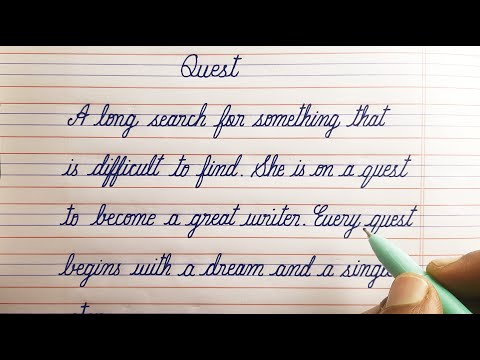 Quest
A long search for something that
is difficult to find. She is on a quest
to become a great writer. Every quest
begins with a dream and a single